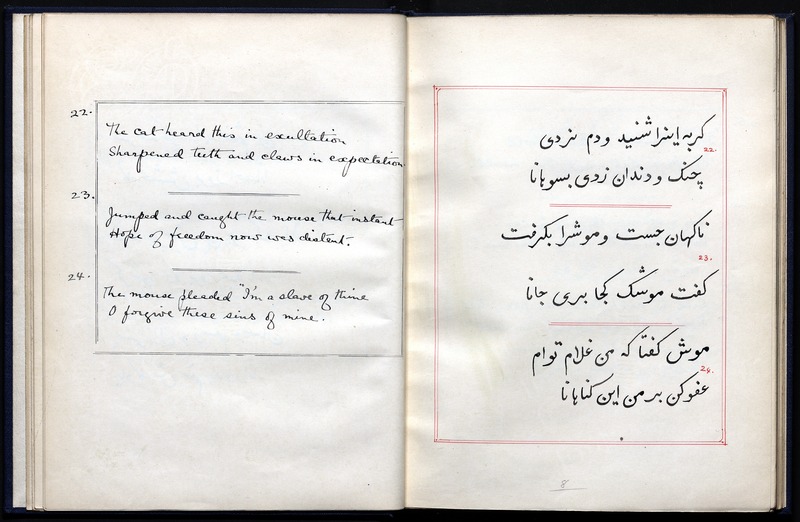 22.
The cat heard this in exultation
Sharpened teeth and claws in expectation.
23.
Jumped and caught the mouse that instant
Hope of freedom now was distant.
24.
The mouse pleaded "I'm a slave of thine
O forgive these sins of mine.
گربه اینرا شنید و دم نزدی
22.
چنک و دندان زدی بسوهانا
ناگهان جست و موشرا بگرفت
23.
گفت موشک کجا بری جانا
موش گفتا که من غلام توام
24.
عفو کن بر من این گناهانا
8